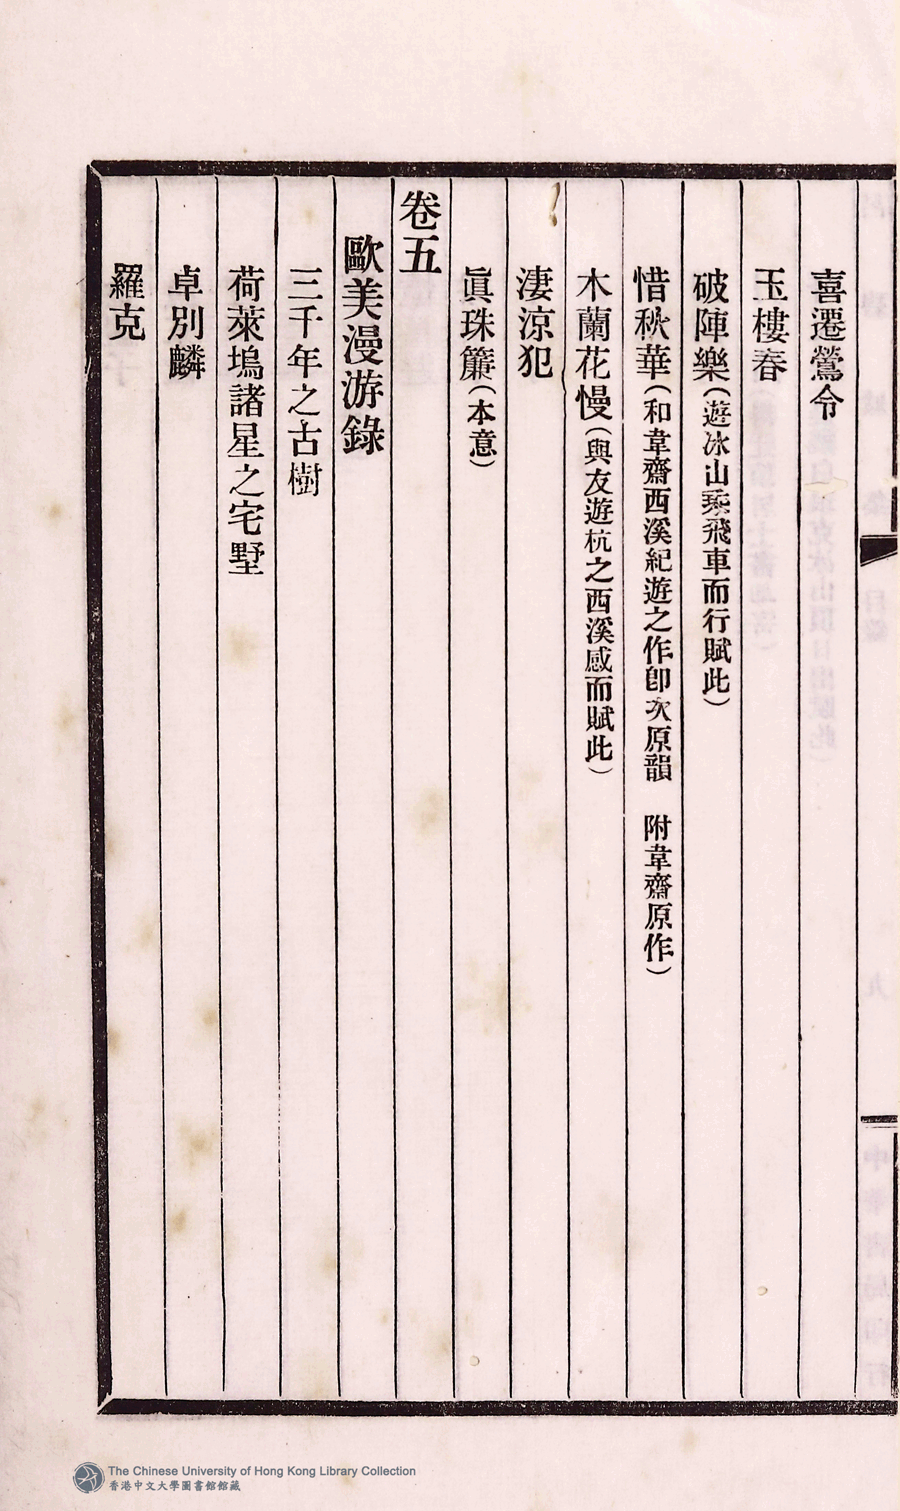 喜遷鶯令
玉樓春
破陣樂（遊冰山乘飛車而行賦此）
惜秋華（和韋齋西溪紀遊之作卽次原韻　附韋齋原作）
木蘭花慢（與友遊杭之西溪感而賦此）
淒涼犯
眞珠簾（本意）
卷五
歐美漫游錄
三千年之古樹
荷萊塢諸星之宅墅
卓別麟
羅克
The Chinese University of Hong Kong Library Collection
香港中文大學圖書館館藏